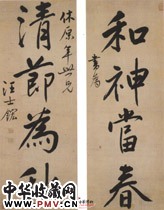 和神當春
書為
休原年世兄
清節為秋
汪士鋐
中华收藏网